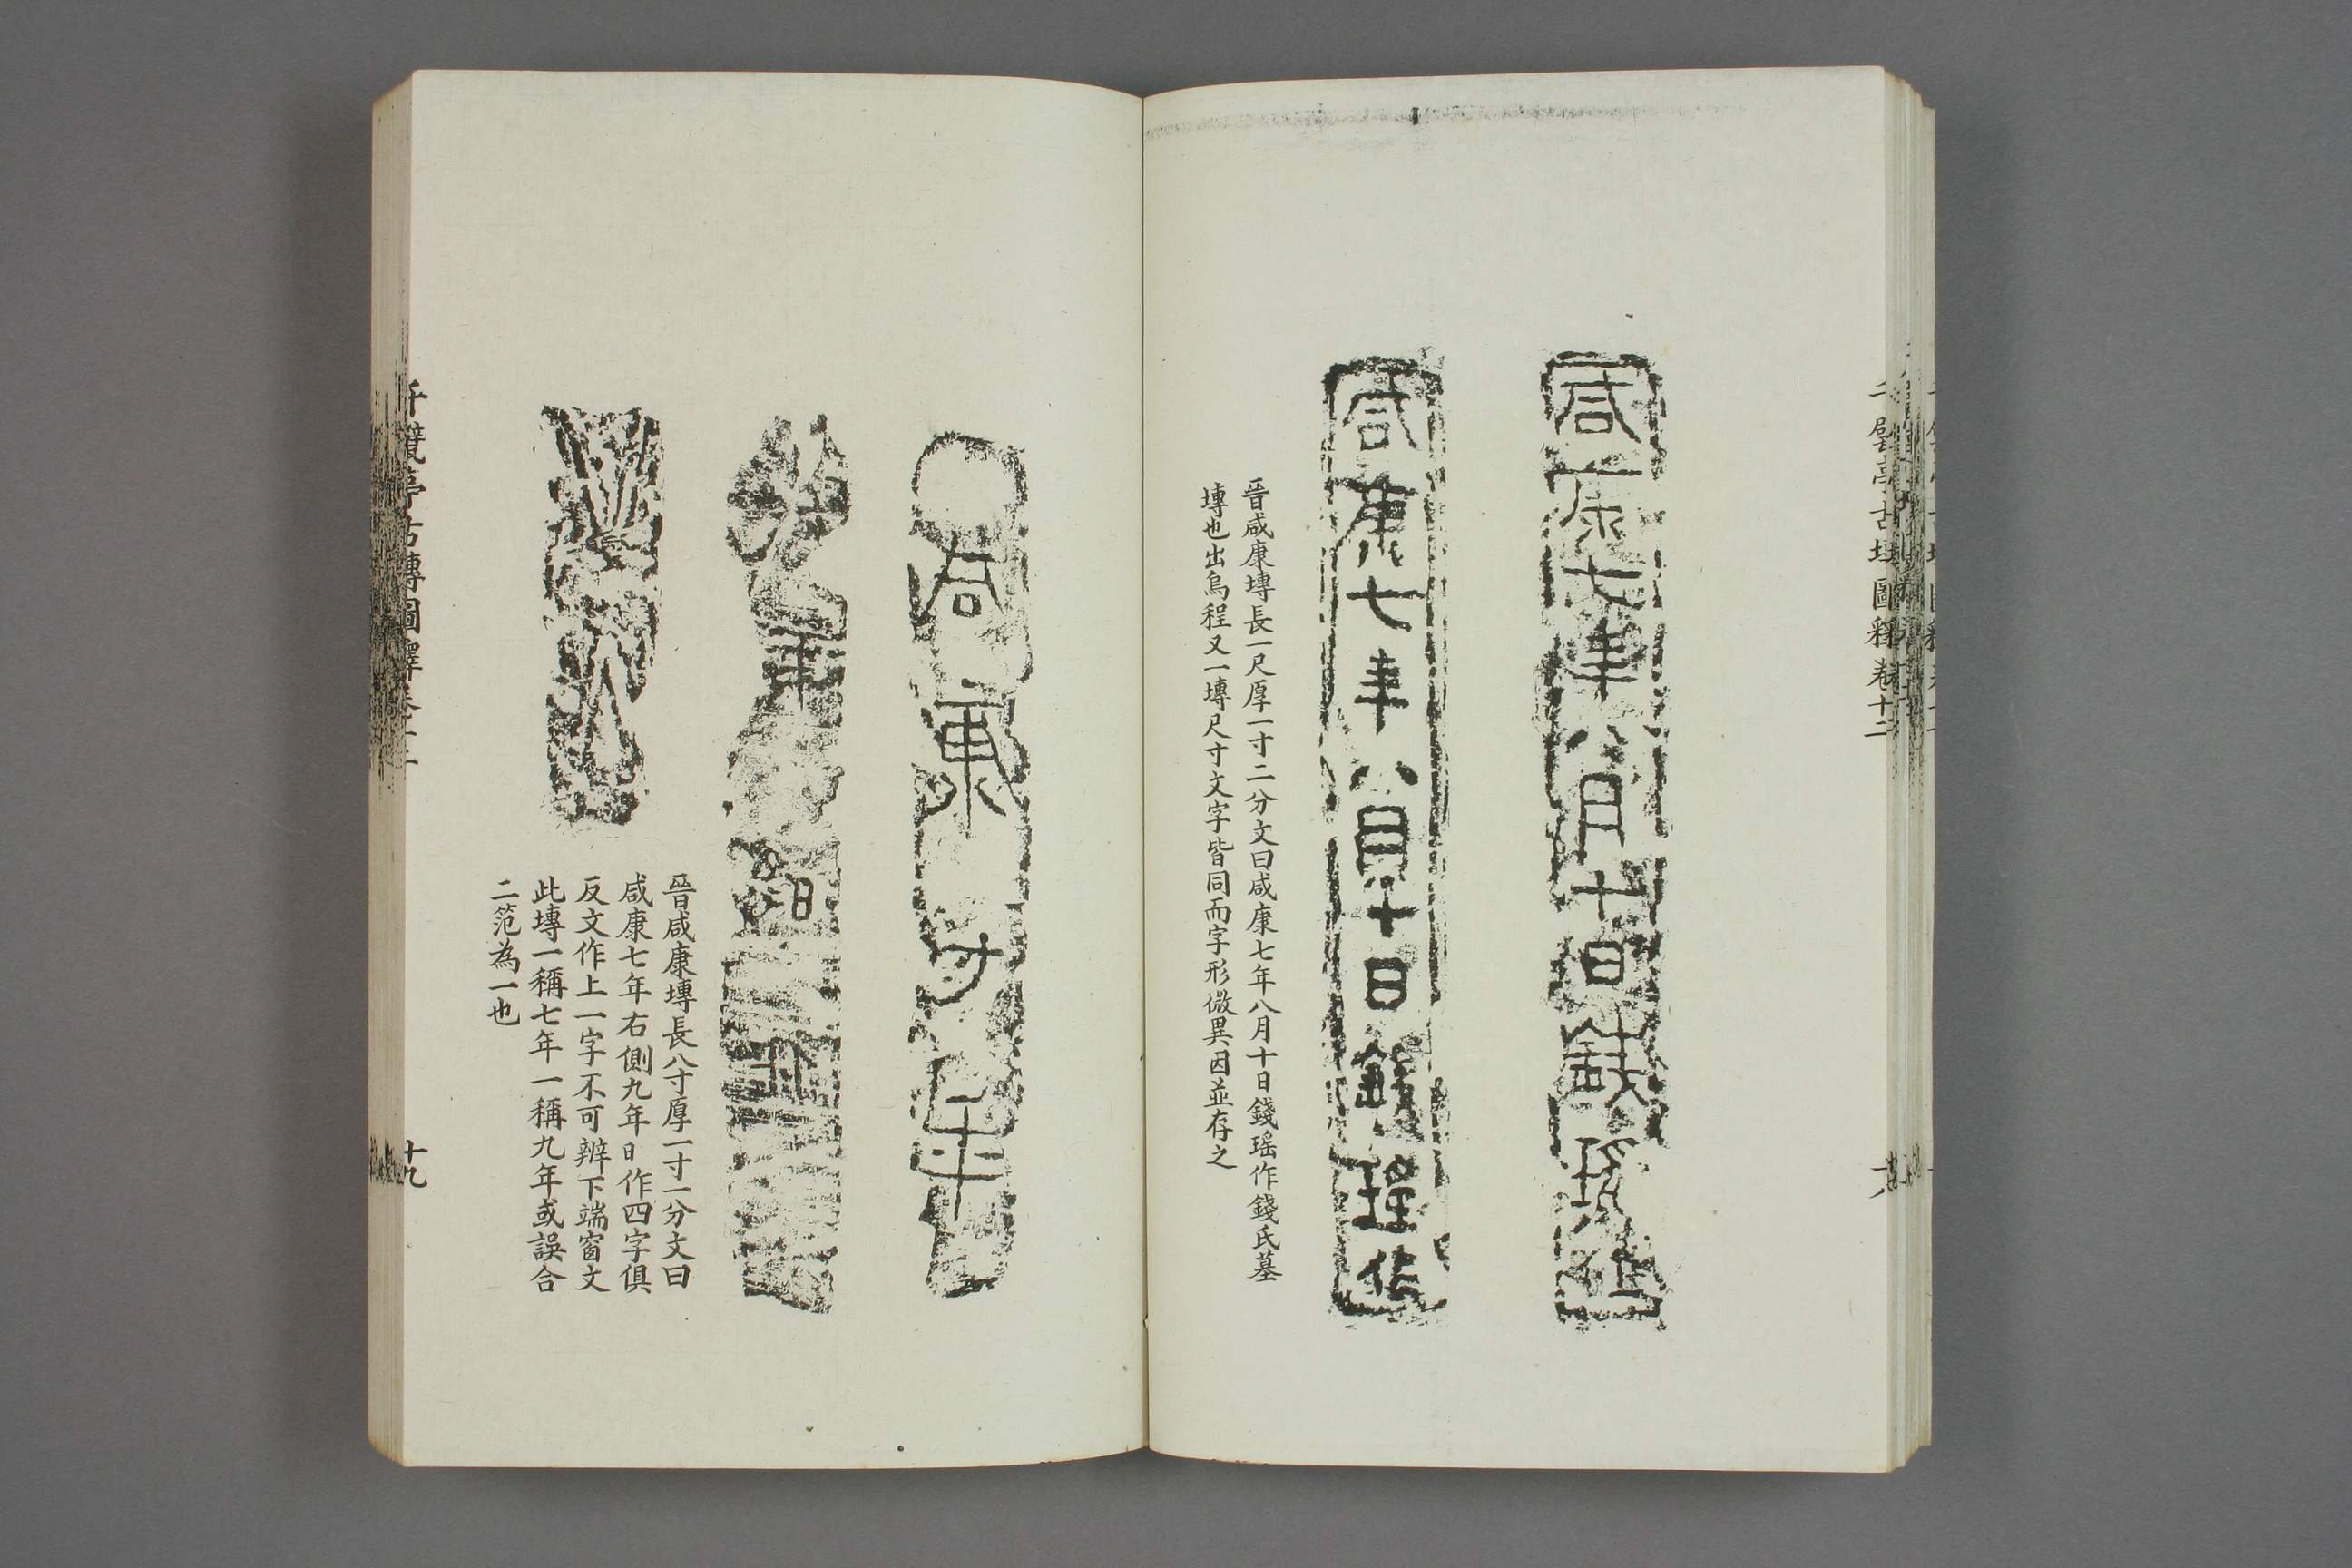 咸康七年八月十日錢瑶作
咸康七年八月十日錢瑶作
晉咸康塼長一尺厚一寸二分文曰咸康七年八月十日錢瑶作錢氏墓
塼也出烏程又一塼尺寸文字皆同而字形微異因並存之
咸康七年
晉咸康塼長八寸厚一寸一分文曰
咸康七年右側九年日作四字俱
反文作上一字不可辨下端窗文
此塼一稱七年一稱九年或誤合
二范為一也
千甓亭古塼圖釋卷十二
十九